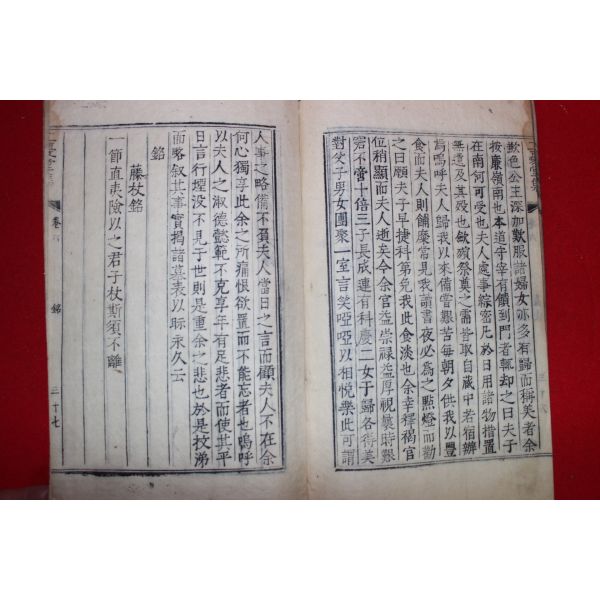 歡色公主深加歎服諸婦女亦多有歸而稱美者余
按廉嶺南也本道守宰有饋到門者輒却之曰夫子
在南何可受也夫人處事綜密凡於日用諸物措置
無遺及其歿也斂殯祭奠之需皆取自蔵中若宿辦
焉嗚呼夫人歸我以來備嘗艱苦每朝夕供我以豐
食而夫人則餔糜常晃我讀書夜必爲之㸃燈而勸
之曰願夫子早捷科第免我此食淡也余幸釋褐官
位稍顯而夫人逝矣今余官益崇禄益厚視曩時艱
窘不啻十倍三子長成連有科慶二女于歸各得美
對父子男女團聚一室言笑啞啞以相悅樂此可謂
人事之略備不負夫人當日之言而顧夫人不在余
何心獨享此余之所痛恨欲置而不能忘者也嗚呼
以夫人之淑德懿範不克享年有足悲者而使其平
日言行堙没不見于世則是重余之悲也於是抆涕
而略叙其事實揭諸墓表以眎永久云
銘
藤杖銘
一節直夷險以之君子杖斯須不離
卷
銘
三十七